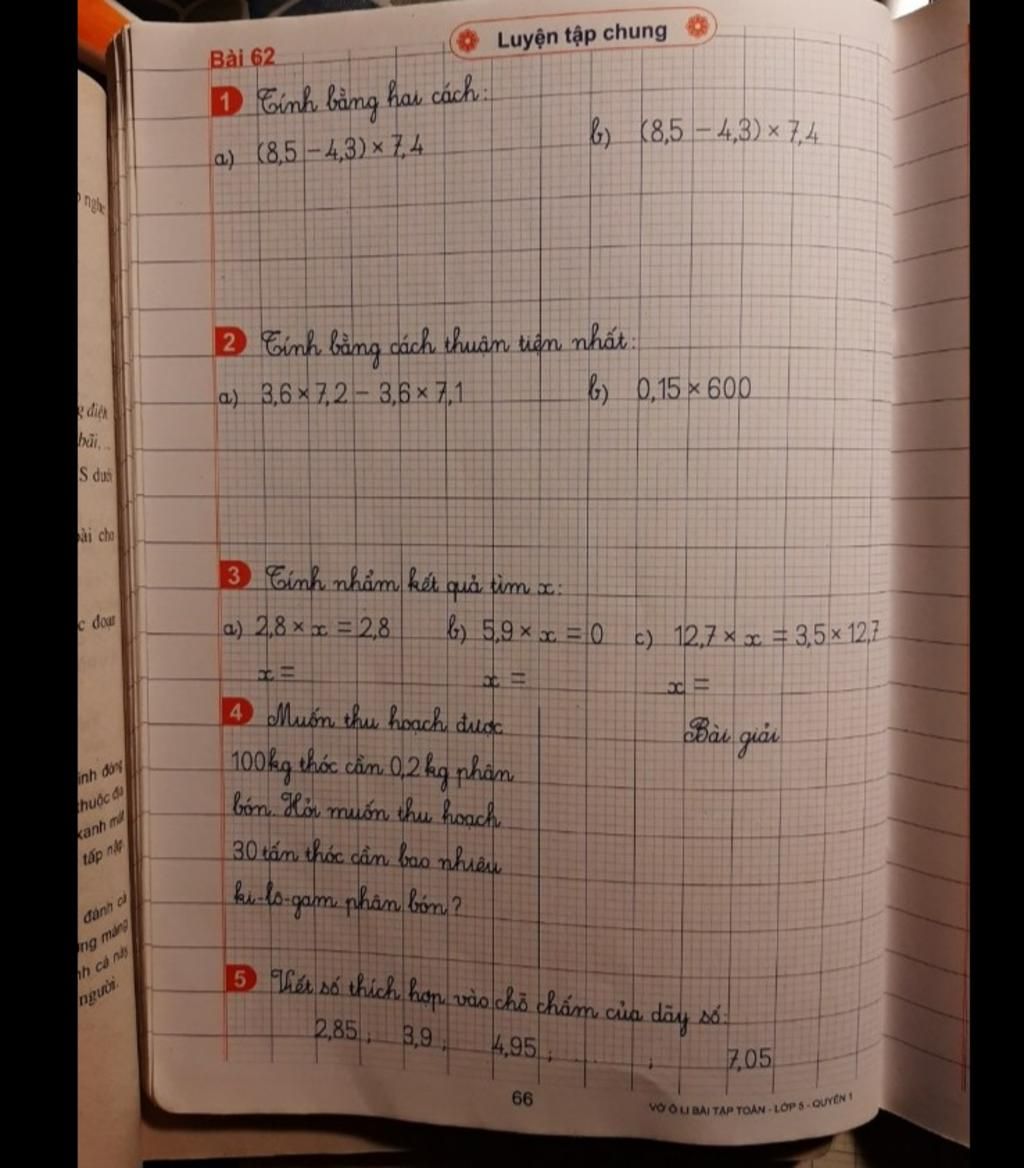 Luyện tập chung
Bài 62
1 Tính bằng hai cách:
a) (8,5 - 4,3) × 7,4 b) (8,5 - 4,3) × 7,4
2 Tính bằng cách thuận tiện nhất:
a) 3,6 × 7,2 - 3,6 × 7,1 b) 0,15 × 600
3 Tính nhẩm kết quả tìm x:
a) 2,8 × x = 2,8 b) 5,9 × x = 0 c) 12,7 × x = 3,5 × 12,7
x = x = x =
4 Muốn thu hoạch được
100kg thóc cần 0,2kg phân
bón. Hỏi muốn thu hoạch
30 tấn thóc cần bao nhiêu
ki-lo-gam phân bón?
Bài giải
5 Viết số thích hợp vào chỗ chấm của dãy số:
2,85 ; 3,9 ; 4,95 ; ...... ; 7,05
66
VỞ Ô LI BÀI TẬP TOÁN - LỚP 5 - QUYỂN 1
điện
bãi, ..
S dưới
bài cho
đoạn
thuộc
xanh
tấp nập
đánh cá
người.